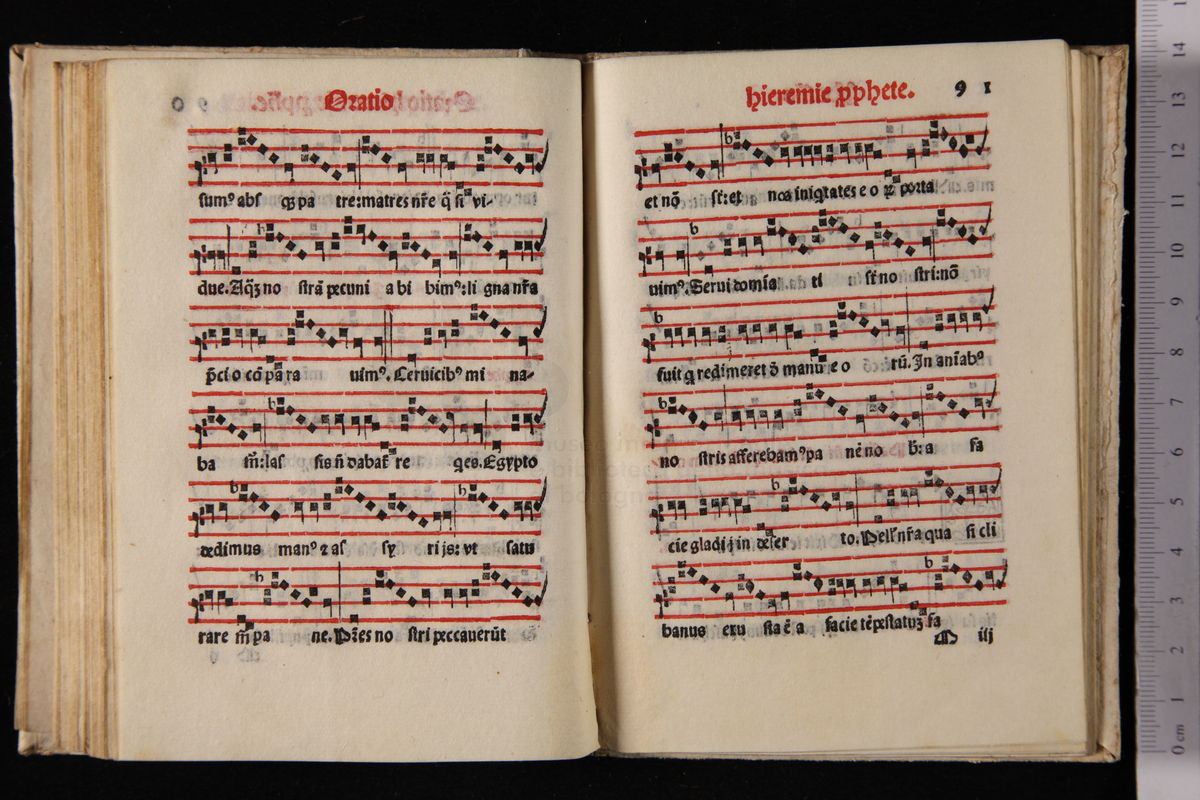 Oratio
sumꝰ absqꝫ patre:matres nr̄e q̄si vi-
due.Aq̄ꝫ nostrā pecunia bibimꝰ:ligna nr̄a
p̄cio cōpara uimꝰ. Ceruicibꝰ mina-
bamr̄:lassis nō dabat̄ reqes.Egypto
dedimus manꝰ ⁊ assyrijs: vt satu
rare mr̄ pane. Pr̄es nostri peccauerūt
hieremie ꝓphete. 91
et nō st:et nos iniqtates eoꝝ porta
uimꝰ. Serui domīati st nostri:nō
fuit q redimeret d̄ manu eorū. In anīabꝰ
nostris afferebamꝰ panē nob̄:a fa
cie gladij in deserto. Pell nr̄a quasi cli
banus exusta ē a facie tēpestatuꝫ fa
M iij
0 cm 1 2 3 4 5 6 7 8 9 10 11 12 13 14